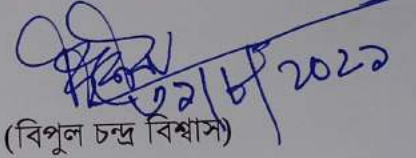 ৩১/৮/২০২১
(বিপুল চন্দ্র বিশ্বাস)